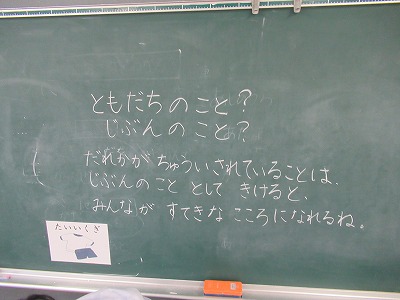 ともだちのこと？
じぶんのこと？
だれかが ちゅういされていることは、
じぶんのこと として きけると、
みんなが すてきな こころになれるね。
たいいくぎ